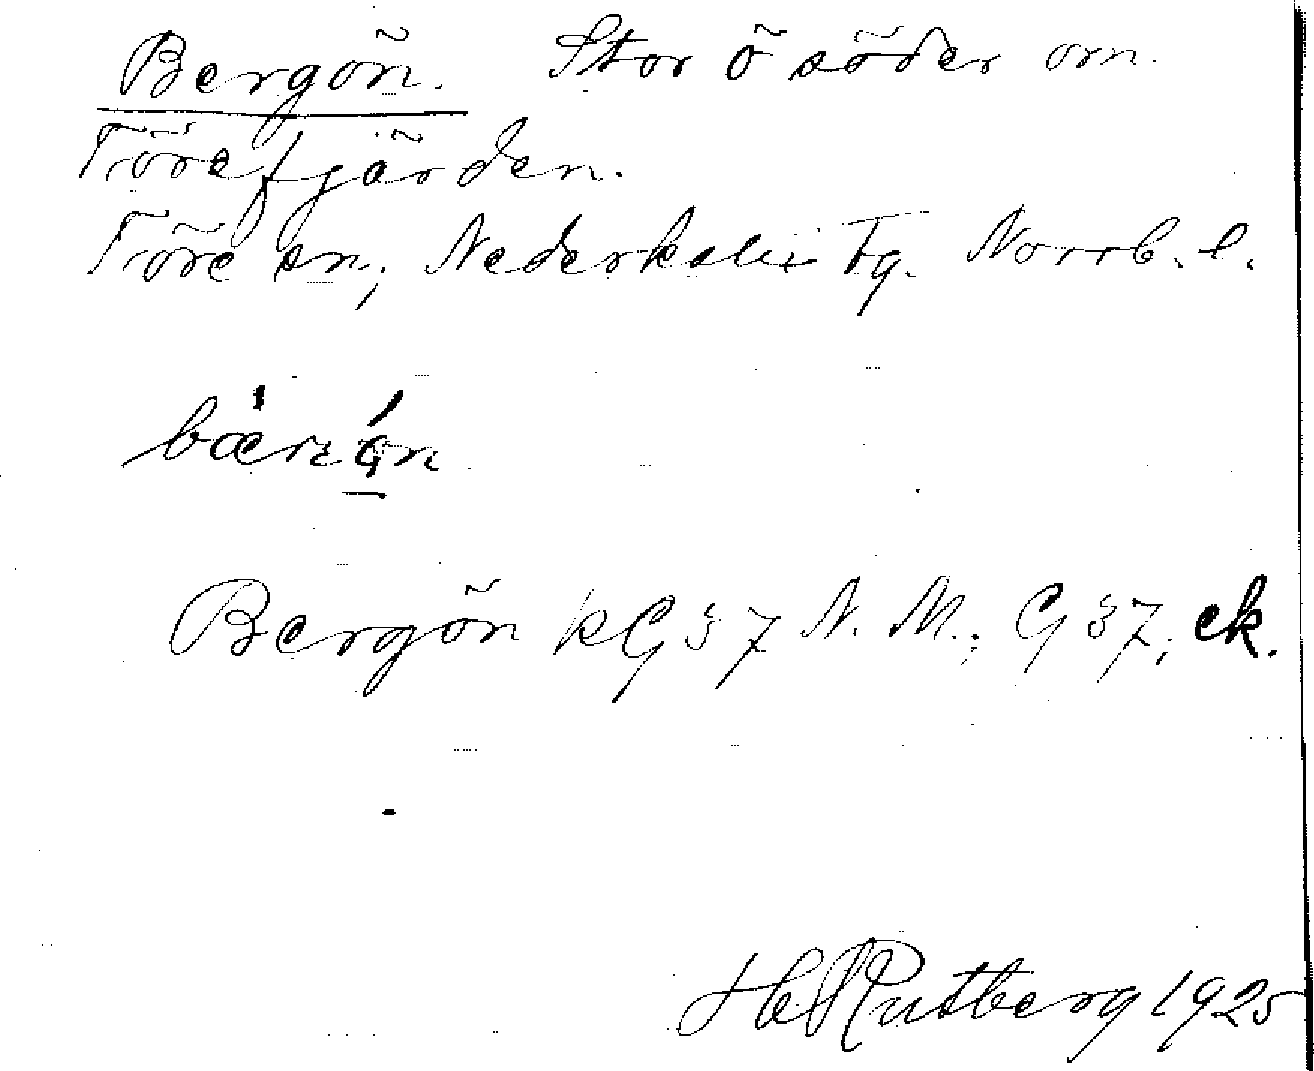 Bergön. Stor ö söder om
Törefjärden.
Töre sn, Nederkalix tg. Norrb. l.
Bergön kG37 N. M.; G37, ek.
H Rutberg 1925